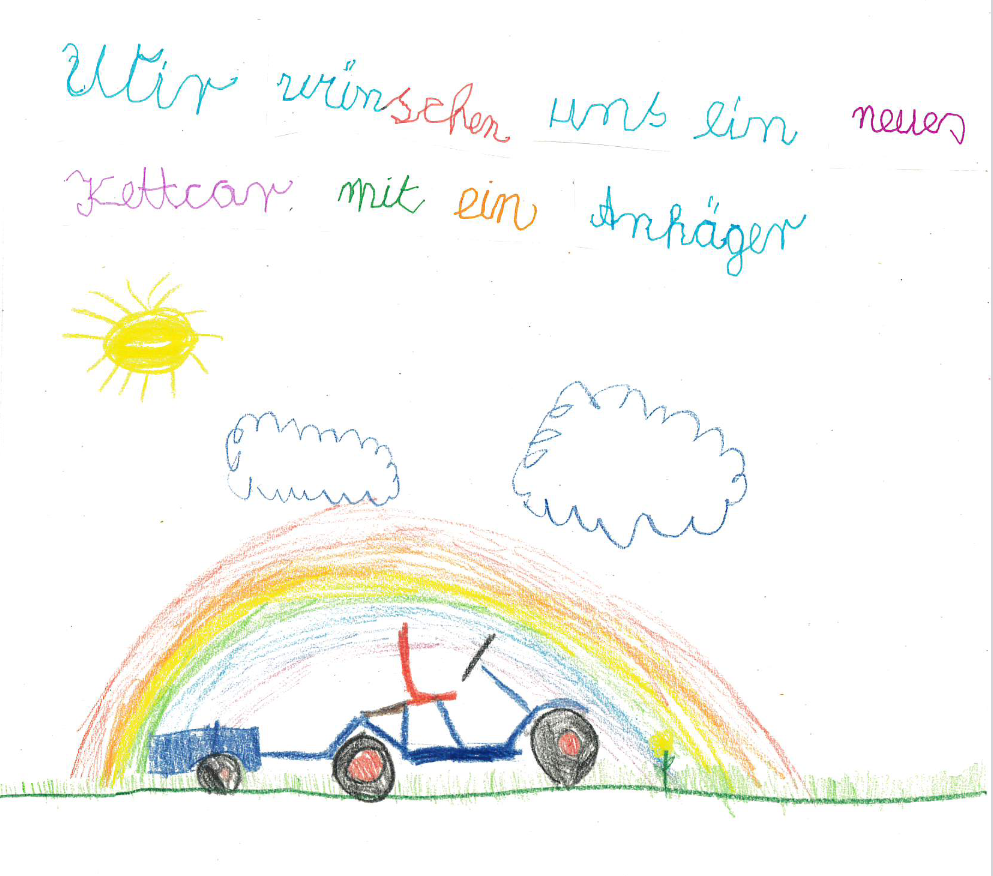 Wir wünschen uns ein neues
Kettcar mit ein Anhäger